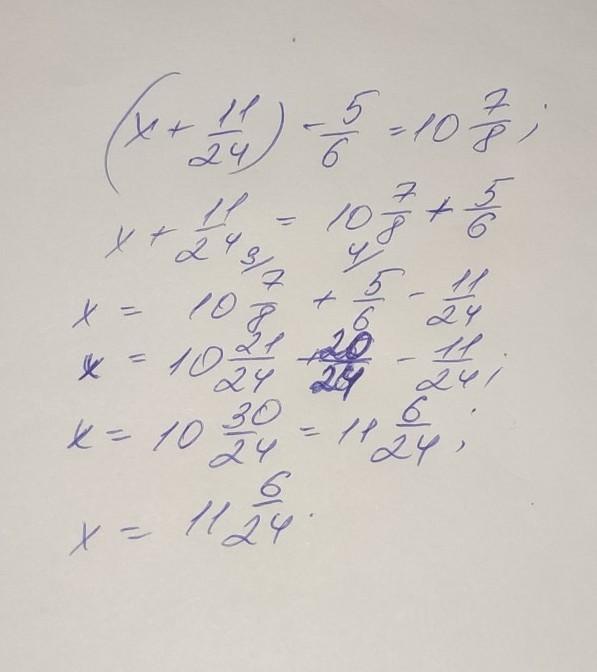 (x + 11/24) - 5/6 = 10 7/8;
x + 11/24 = 10 7/8 + 5/6
x = 10 7/8 3/ + 5/6 4/ - 11/24
x = 10 21/24 + 20/24 - 11/24;
x = 10 30/24 = 11 6/24;
x = 11 6/24.